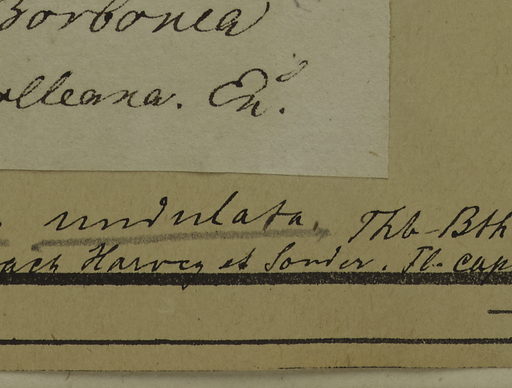 Borbonea
olleana. En.
undulata, Thb-Bth
nach Harvey et Sonder. Fl. cap